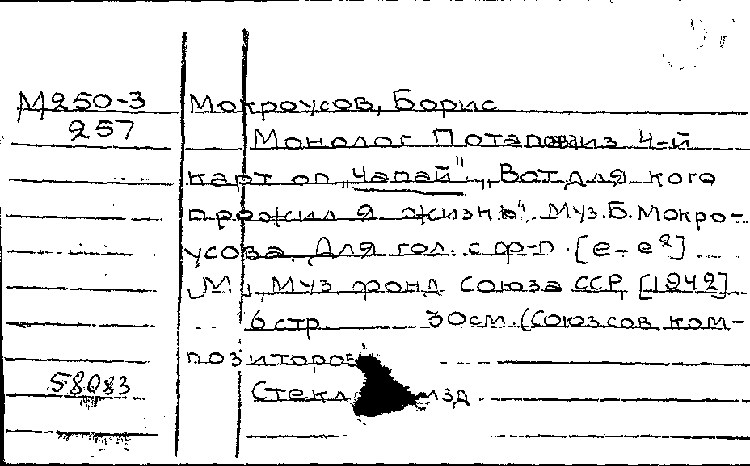 М250-3 Мокроусов, Борис
257 Монолог Потапова из 4-й
карт оп „Чапай“ „Вот для кого
прожил я жизнь“. Муз. Б. Мокро-
усова Для гол. с ф-п. [е - е²]
М., Муз фонд Союза ССР, [1949]
6 стр 30см. (Союз сов. ком-
позиторов
58083 Стекл изд.